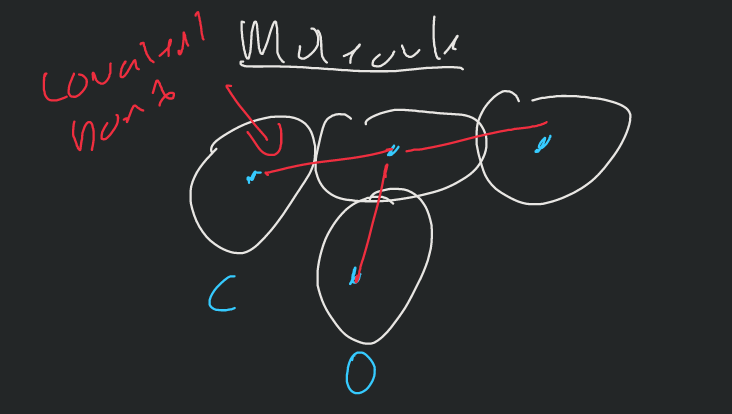 Molecule
Covalent
Bond
C
O